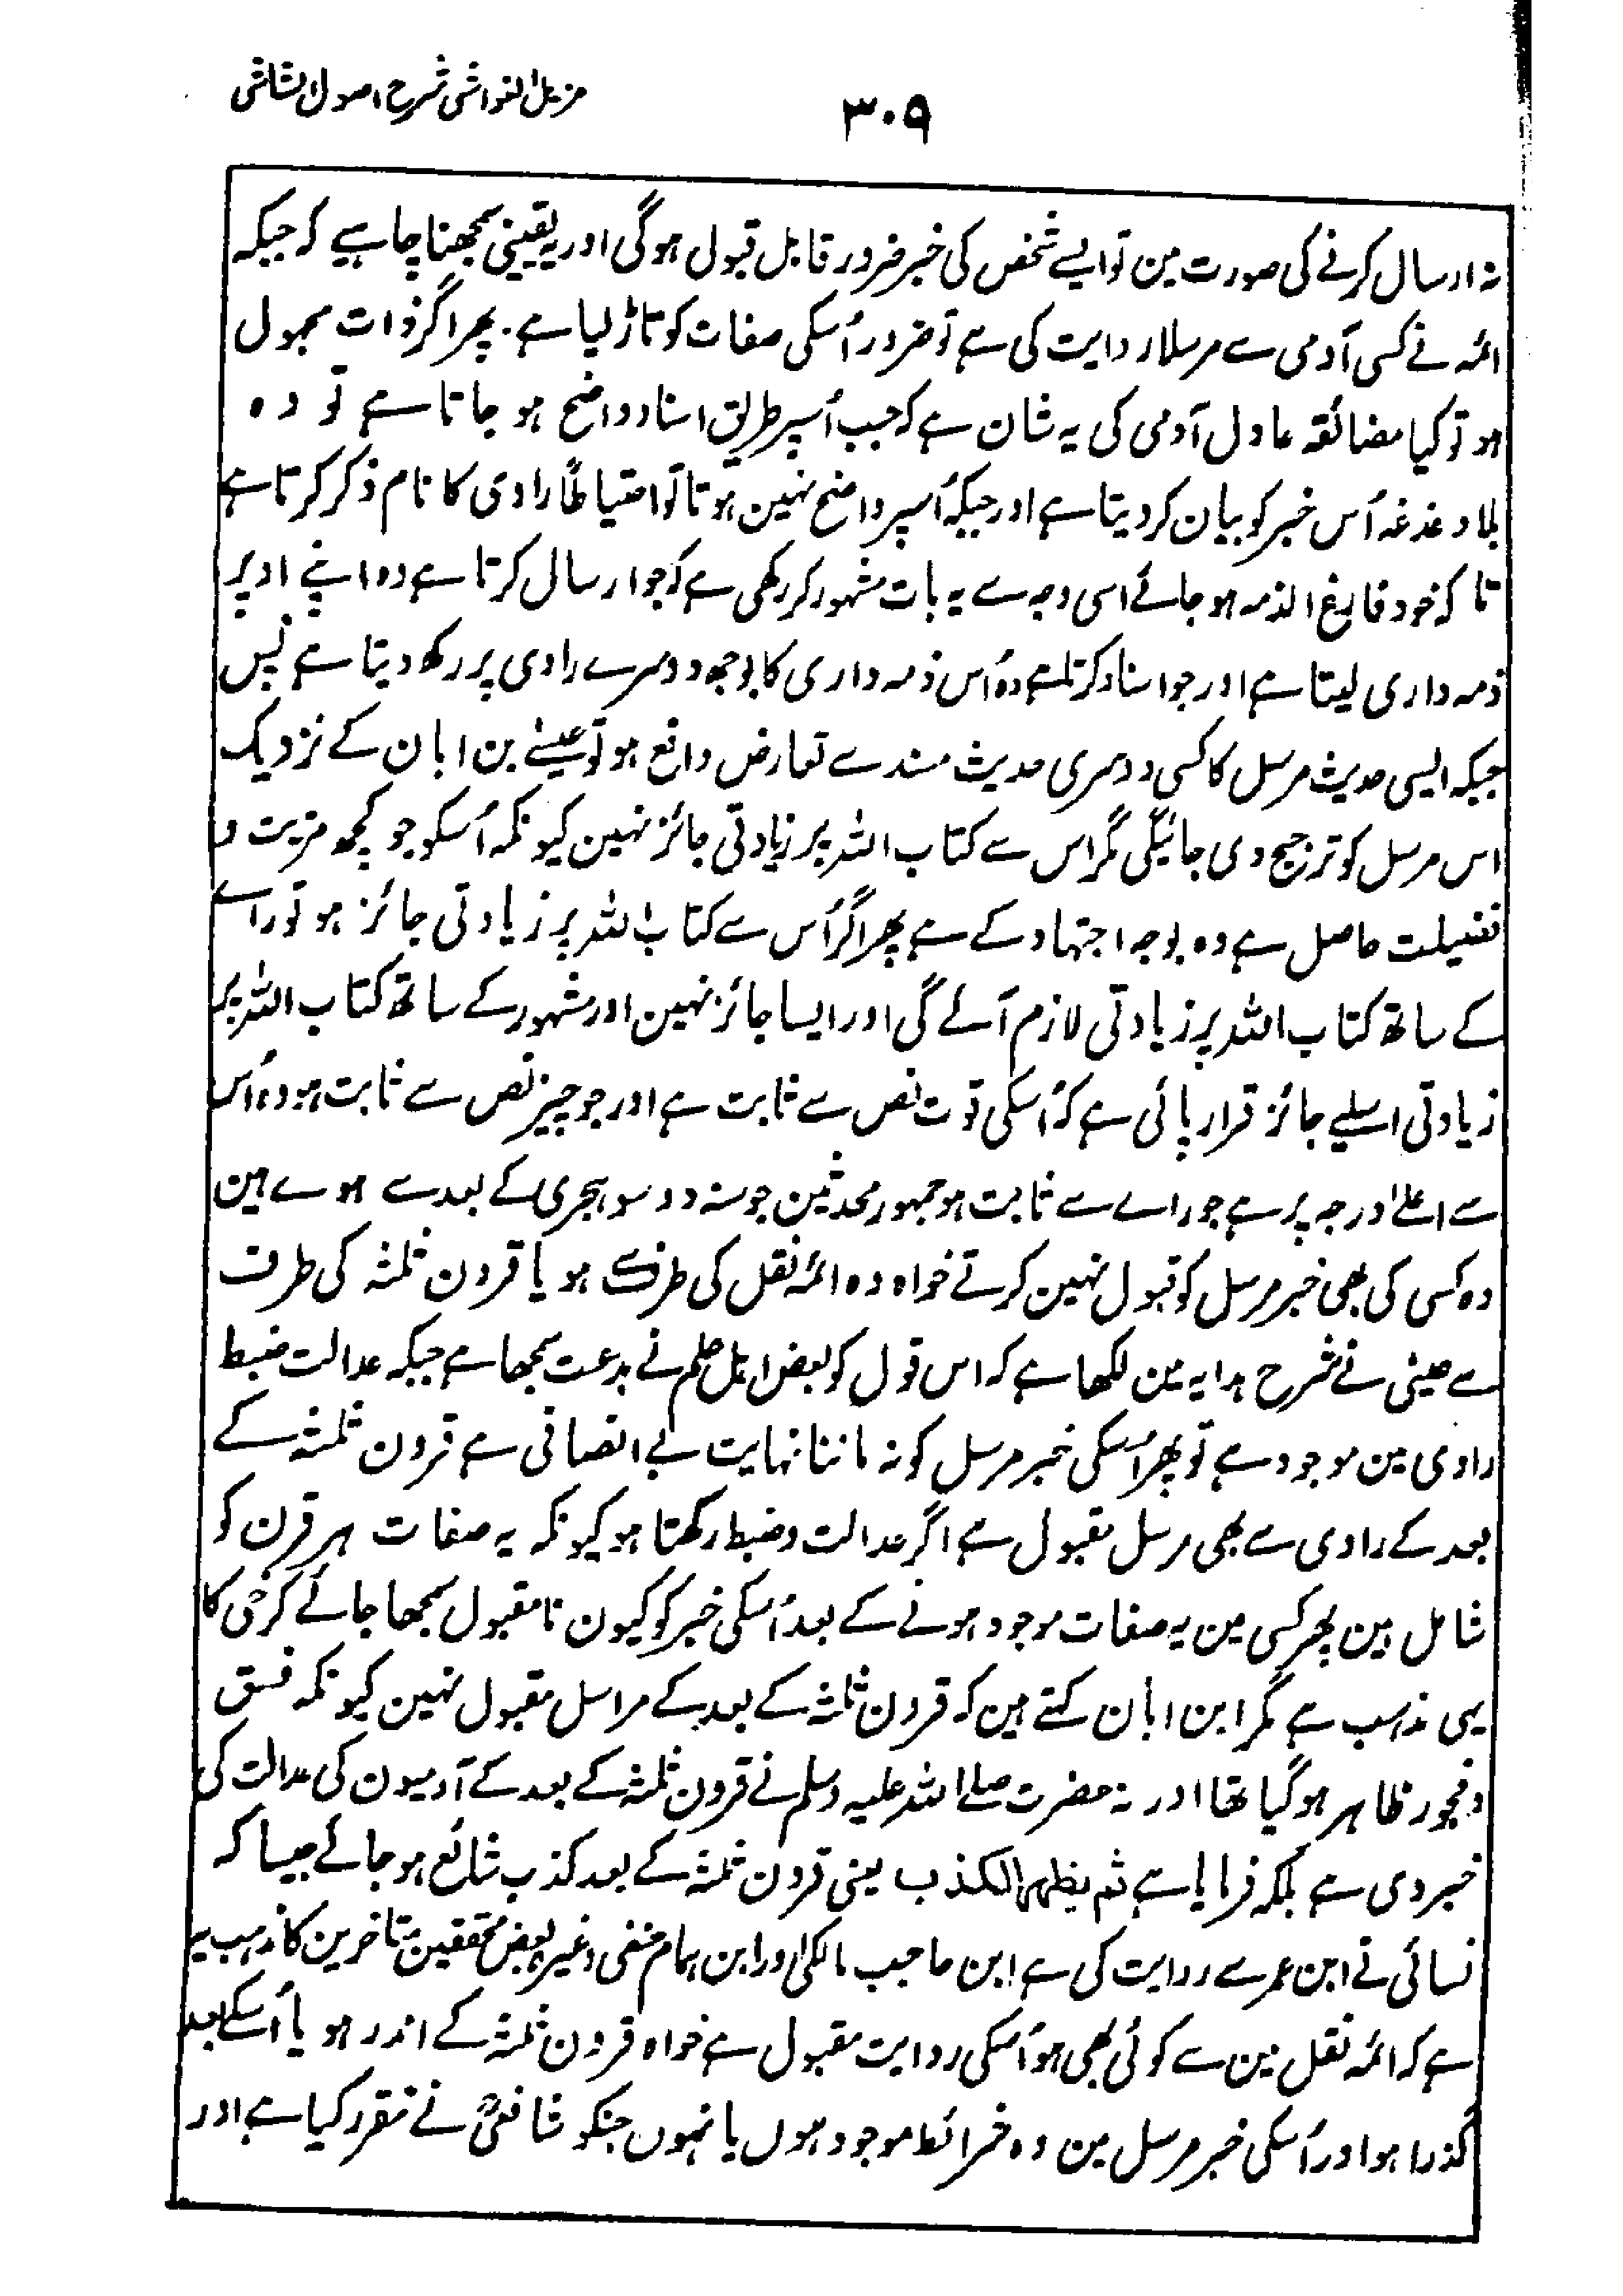 مزیل الغواشی شرح اصول الشاشی
۳۰۹
نہ ارسال کرنے کی صورت مین تو ایسے شخص کی خبر ضرور قابل قبول ہوگی اور یہ یقینی سمجھنا چاہیے کہ جبکہ
ائمہ نے کسی آدمی سے مرسلا روایت کی ہے تو ضرور اُسکی صفات کو تاڑ لیا ہے۔ پھر اگر ذات مجہول
ہو تو کیا مضائقہ عادل آدمی کی یہ شان ہے کہ جب اُسپر طریق اسناد واضح ہو جاتا ہے تو وہ
بلا دغدغہ اُس خبر کو بیان کر دیتا ہے اور جبکہ اُسپر واضح نہین ہوتا تو احتیاطاً راوی کا نام ذکر کرتا ہے
تاکہ خود فارغ الذمہ ہو جائے اسی وجہ سے یہ بات مشہور کر رکھی ہے کہ جو ارسال کرتا ہے وہ اپنے اوپر
ذمہ داری لیتا ہے اور جو اسناد کرتا ہے وہ اُس ذمہ داری کا بوجھ دوسرے راوی پر رکھ دیتا ہے پس
جبکہ ایسی حدیث مرسل کا کسی دوسری حدیث مسند سے تعارض واقع ہو تو عیسیٰ بن ابان کے نزدیک
اس مرسل کو ترجیح دی جائیگی مگر اس سے کتاب اللہ پر زیادتی جائز نہین کیونکہ اُسکو جو کچھ مزیت و
فضیلت حاصل ہے وہ بوجہ اجتہاد کے ہے پھر اگر اُس سے کتاب اللہ پر زیادتی جائز ہو تو راے
کے ساتھ کتاب اللہ پر زیادتی لازم آئے گی اور ایسا جائز نہین اور مشہور کے ساتھ کتاب اللہ پر
زیادتی اسلیے جائز قرار پائی ہے کہ اُسکی قوت نص سے ثابت ہے اور جو چیز نص سے ثابت ہو وہ اُس
سے اعلیٰ درجہ پر ہے جو راے سے ثابت ہو جمہور محدثین جو سنہ دو سو ہجری کے بعد سے ہوے ہین
وہ کسی کی بھی خبر مرسل کو قبول نہین کرتے خواہ وہ ائمہ نقل کی طرف سے ہو یا قرون ثلٰثہ کی طرف
سے عینی نے شرح ہدایہ مین لکھا ہے کہ اس قول کو بعض اہل علم نے بدعت سمجھا ہے جبکہ عدالت ضبط
راوی مین موجود ہے تو پھر اُسکی خبر مرسل کو نہ ماننا نہایت بے انصافی ہے قرون ثلٰثہ کے
بعد کے راوی سے بھی مرسل مقبول ہے اگر عدالت و ضبط رکھتا ہو کیونکہ یہ صفات ہر قرن کو
شامل ہین پھر کسی مین یہ صفات موجود ہونے کے بعد اُسکی خبر کو کیون نا مقبول سمجھا جائے کرخی کا
یہی مذہب ہے مگر ابن ابان کہتے ہین کہ قرون ثلٰثہ کے بعد کے مراسل مقبول نہین کیونکہ فسق
و فجور ظاہر ہو گیا تھا اور نہ حضرت صلے اللہ علیہ وسلم نے قرون ثلٰثہ کے بعد کے آدمیون کی عدالت کی
خبر دی ہے بلکہ فرمایا ہے ثم یظہر الکذب یعنی قرون ثلٰثہ کے بعد کذب شائع ہو جائے جیسا کہ
نسائی نے ابن عمر سے روایت کی ہے ابن حاجب مالکی اور ابن ہمام حنفی وغیرہ بعض محققین متاخرین کا مذہب یہ
ہے کہ ائمہ نقل مین سے کوئی بھی ہو اُسکی روایت مقبول ہے خواہ قرون ثلٰثہ کے اندر ہو یا اُسکے بعد
گذرا ہو اور اُسکی خبر مرسل مین وہ شرائط موجود ہوں یا نہوں جنکو شافعیؒ نے مقرر کیا ہے اور